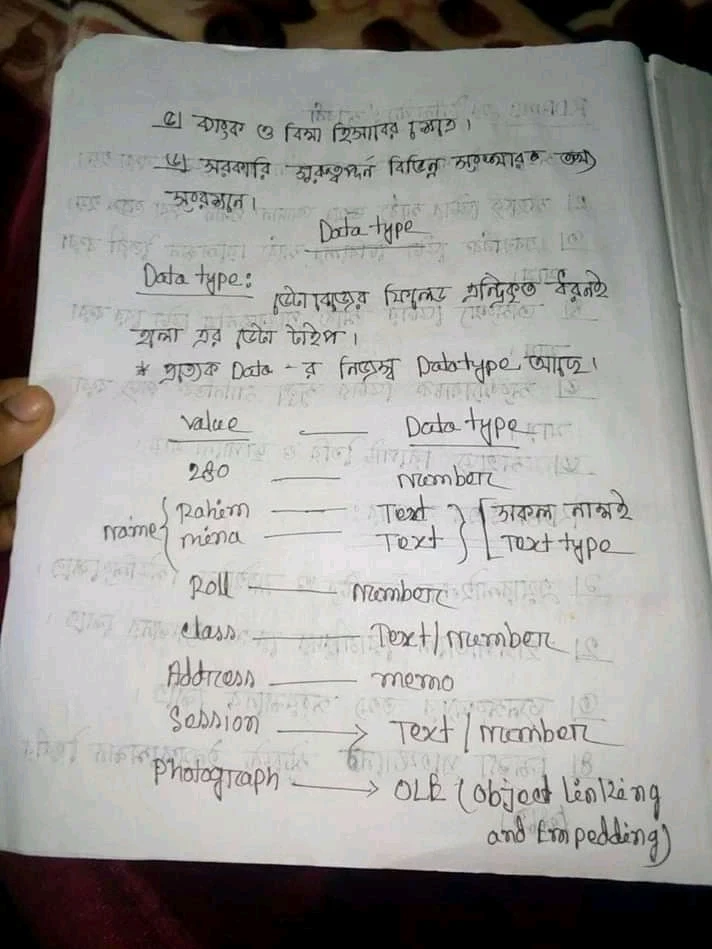 ৫। ব্যাংক ও বিমা হিসাবের ক্ষেত্রে।
৬। সরকারি গুরুত্বপূর্ন বিভিন্ন তথ্য
সংরক্ষনে।
Data type
Data type: ডেটাবেজের ফিল্ডে এন্ট্রিকৃত ধরনই
হলো এর ডেটা টাইপ।
* প্রত্যেক Data - র নিজস্ব Datatype আছে।
value — Data type
280 — number
name { Rahim — Text } [ সকল নামই
mina — Text [ Text type
Roll — number
class — Text/number
Address — memo
Session → Text/number
Photograph → OLE (object linking
and Empedding)